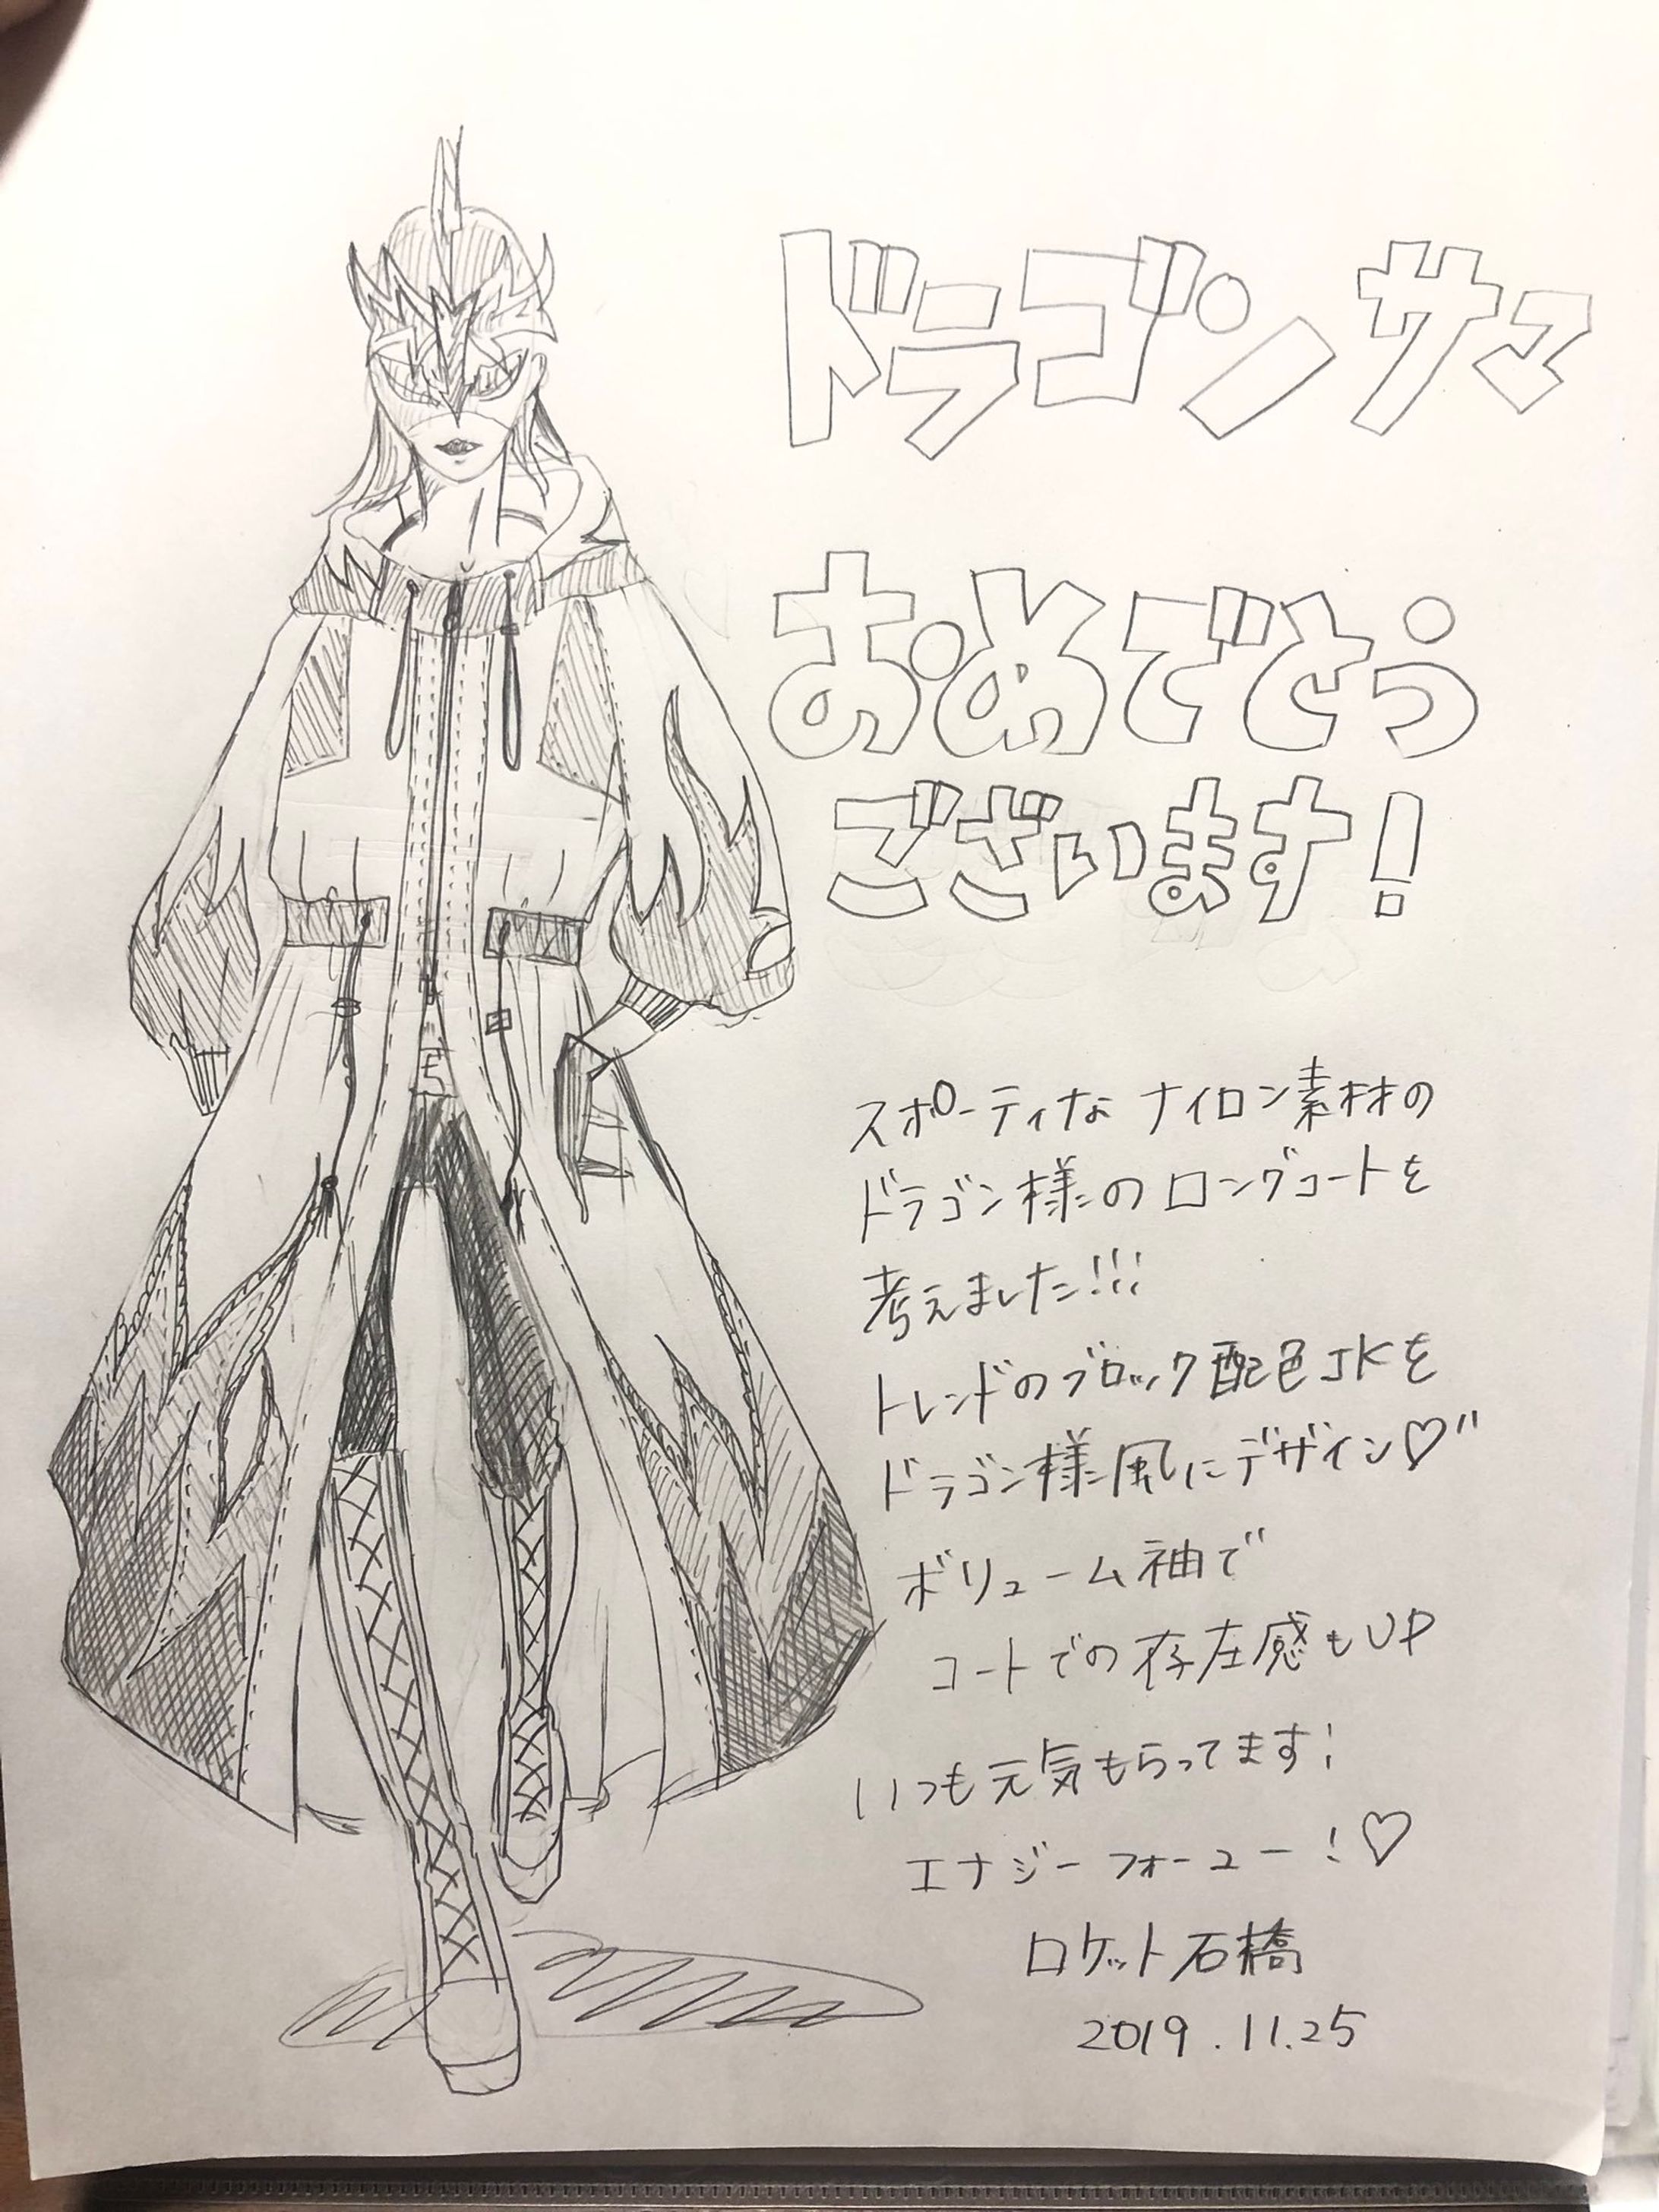 ドラゴンサマ
おめでとう
ございます!
スポーティなナイロン素材の
ドラゴン様のロングコートを
考えました!!!
トレンドのブロック配色JKを
ドラゴン様風にデザイン♡"
ボリューム袖で
コートでの存在感もUP
いつも元気もらってます!
エナジーフォーユー!♡
ロケット石橋
2019.11.25